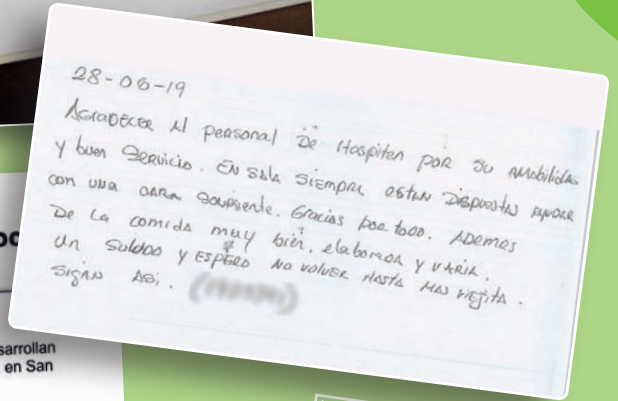 28-06-19
Agradecer al personal de Hospiten por su amabilidad
y buen servicio. En sala siempre estan dispuestas ayudar
con una cara sonriente. Gracias por todo. Ademas
De la comida muy bien, elaborada y varia.
Un saludo y Espero no volver hasta mas viejita.
Sigan asi.
sarrollan
en San